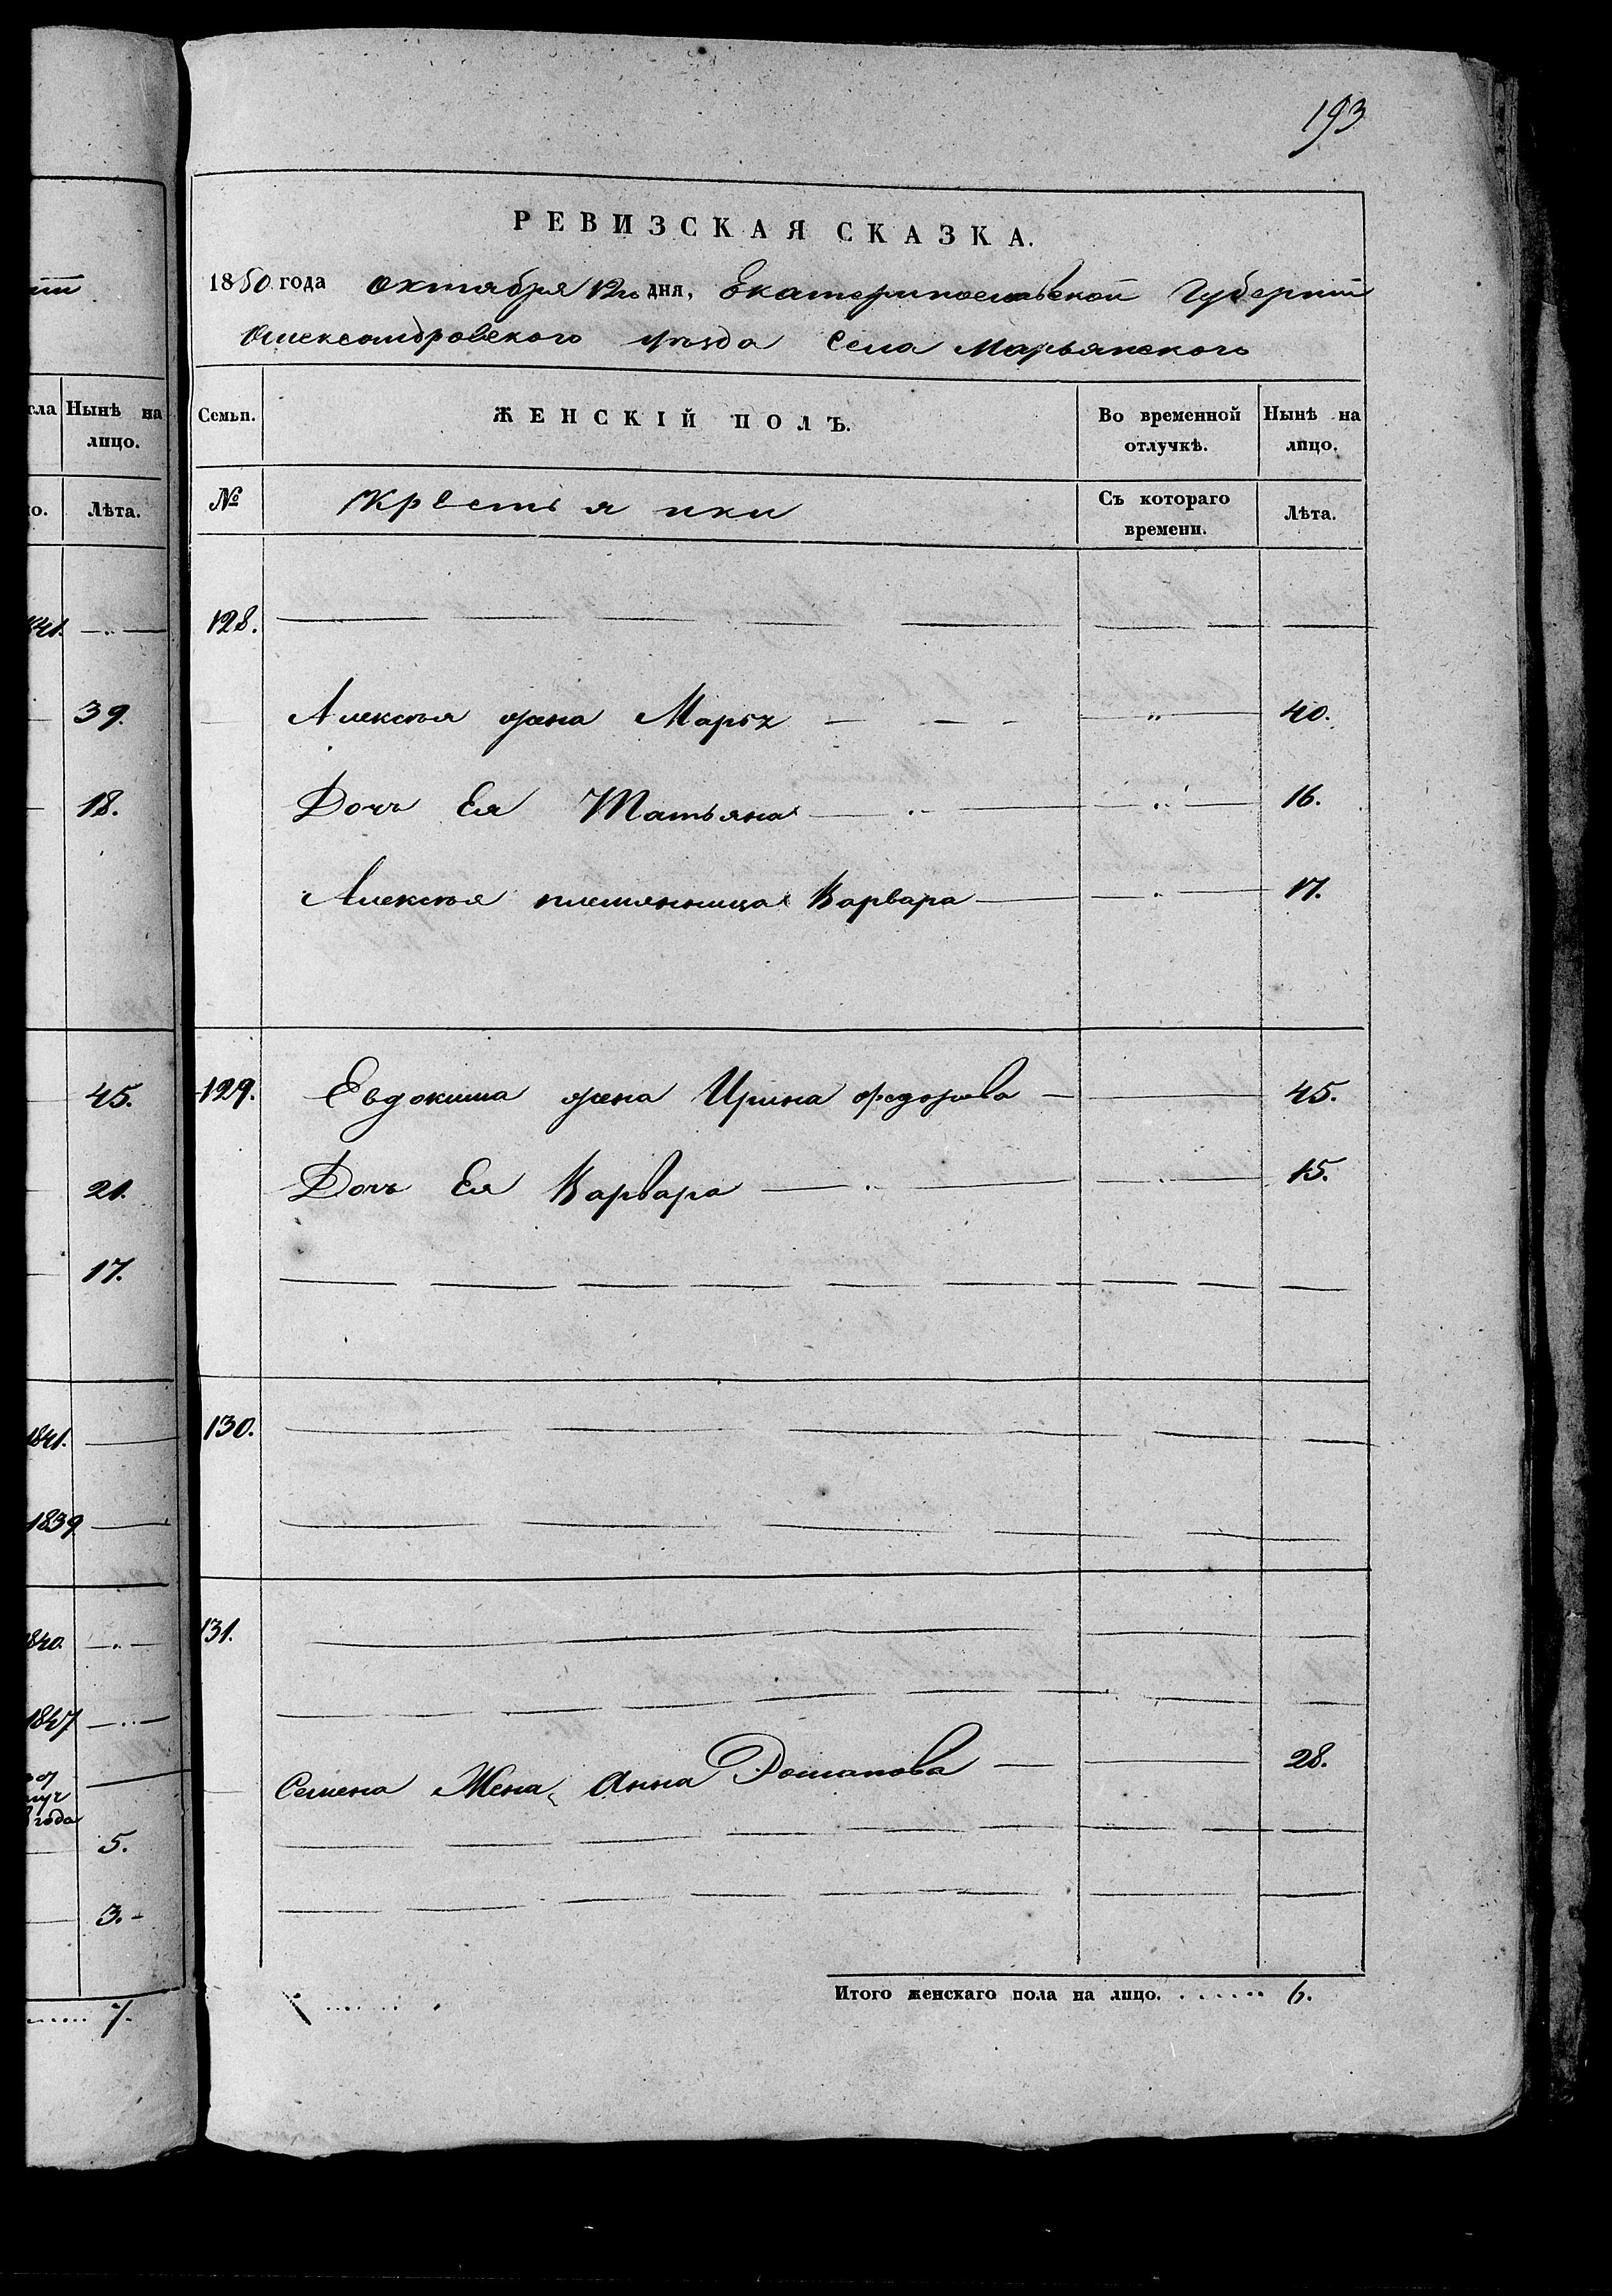 193
РЕВИЗСКАЯ СКАЗКА.
1850 года октября 12го дня, Екатеринославской Губернiи
Александровского уѣзда Села Марьянского
Семьи. ЖЕНСКІЙ ПОЛЪ. Во временной отлучкѣ. Нынѣ на лицо.
№ Крестьянки Съ котораго времени. Лѣта.
128.
Алексѣя жена Марья 40.
Дочь Ея Татьяна 16.
Алексѣя племянница Варвара 17.
129. Евдокима жена Ирина федорова 45.
Дочь Ея Варвара 15.
130.
131.
Семена Жена Анна Романова 28.
Итого женскаго пола на лицо. 6.
Нынѣ на
лицо.
Лѣта.
39.
18.
45.
21.
17.
1841.
1839
1840
1847
года
5.
3.
7.